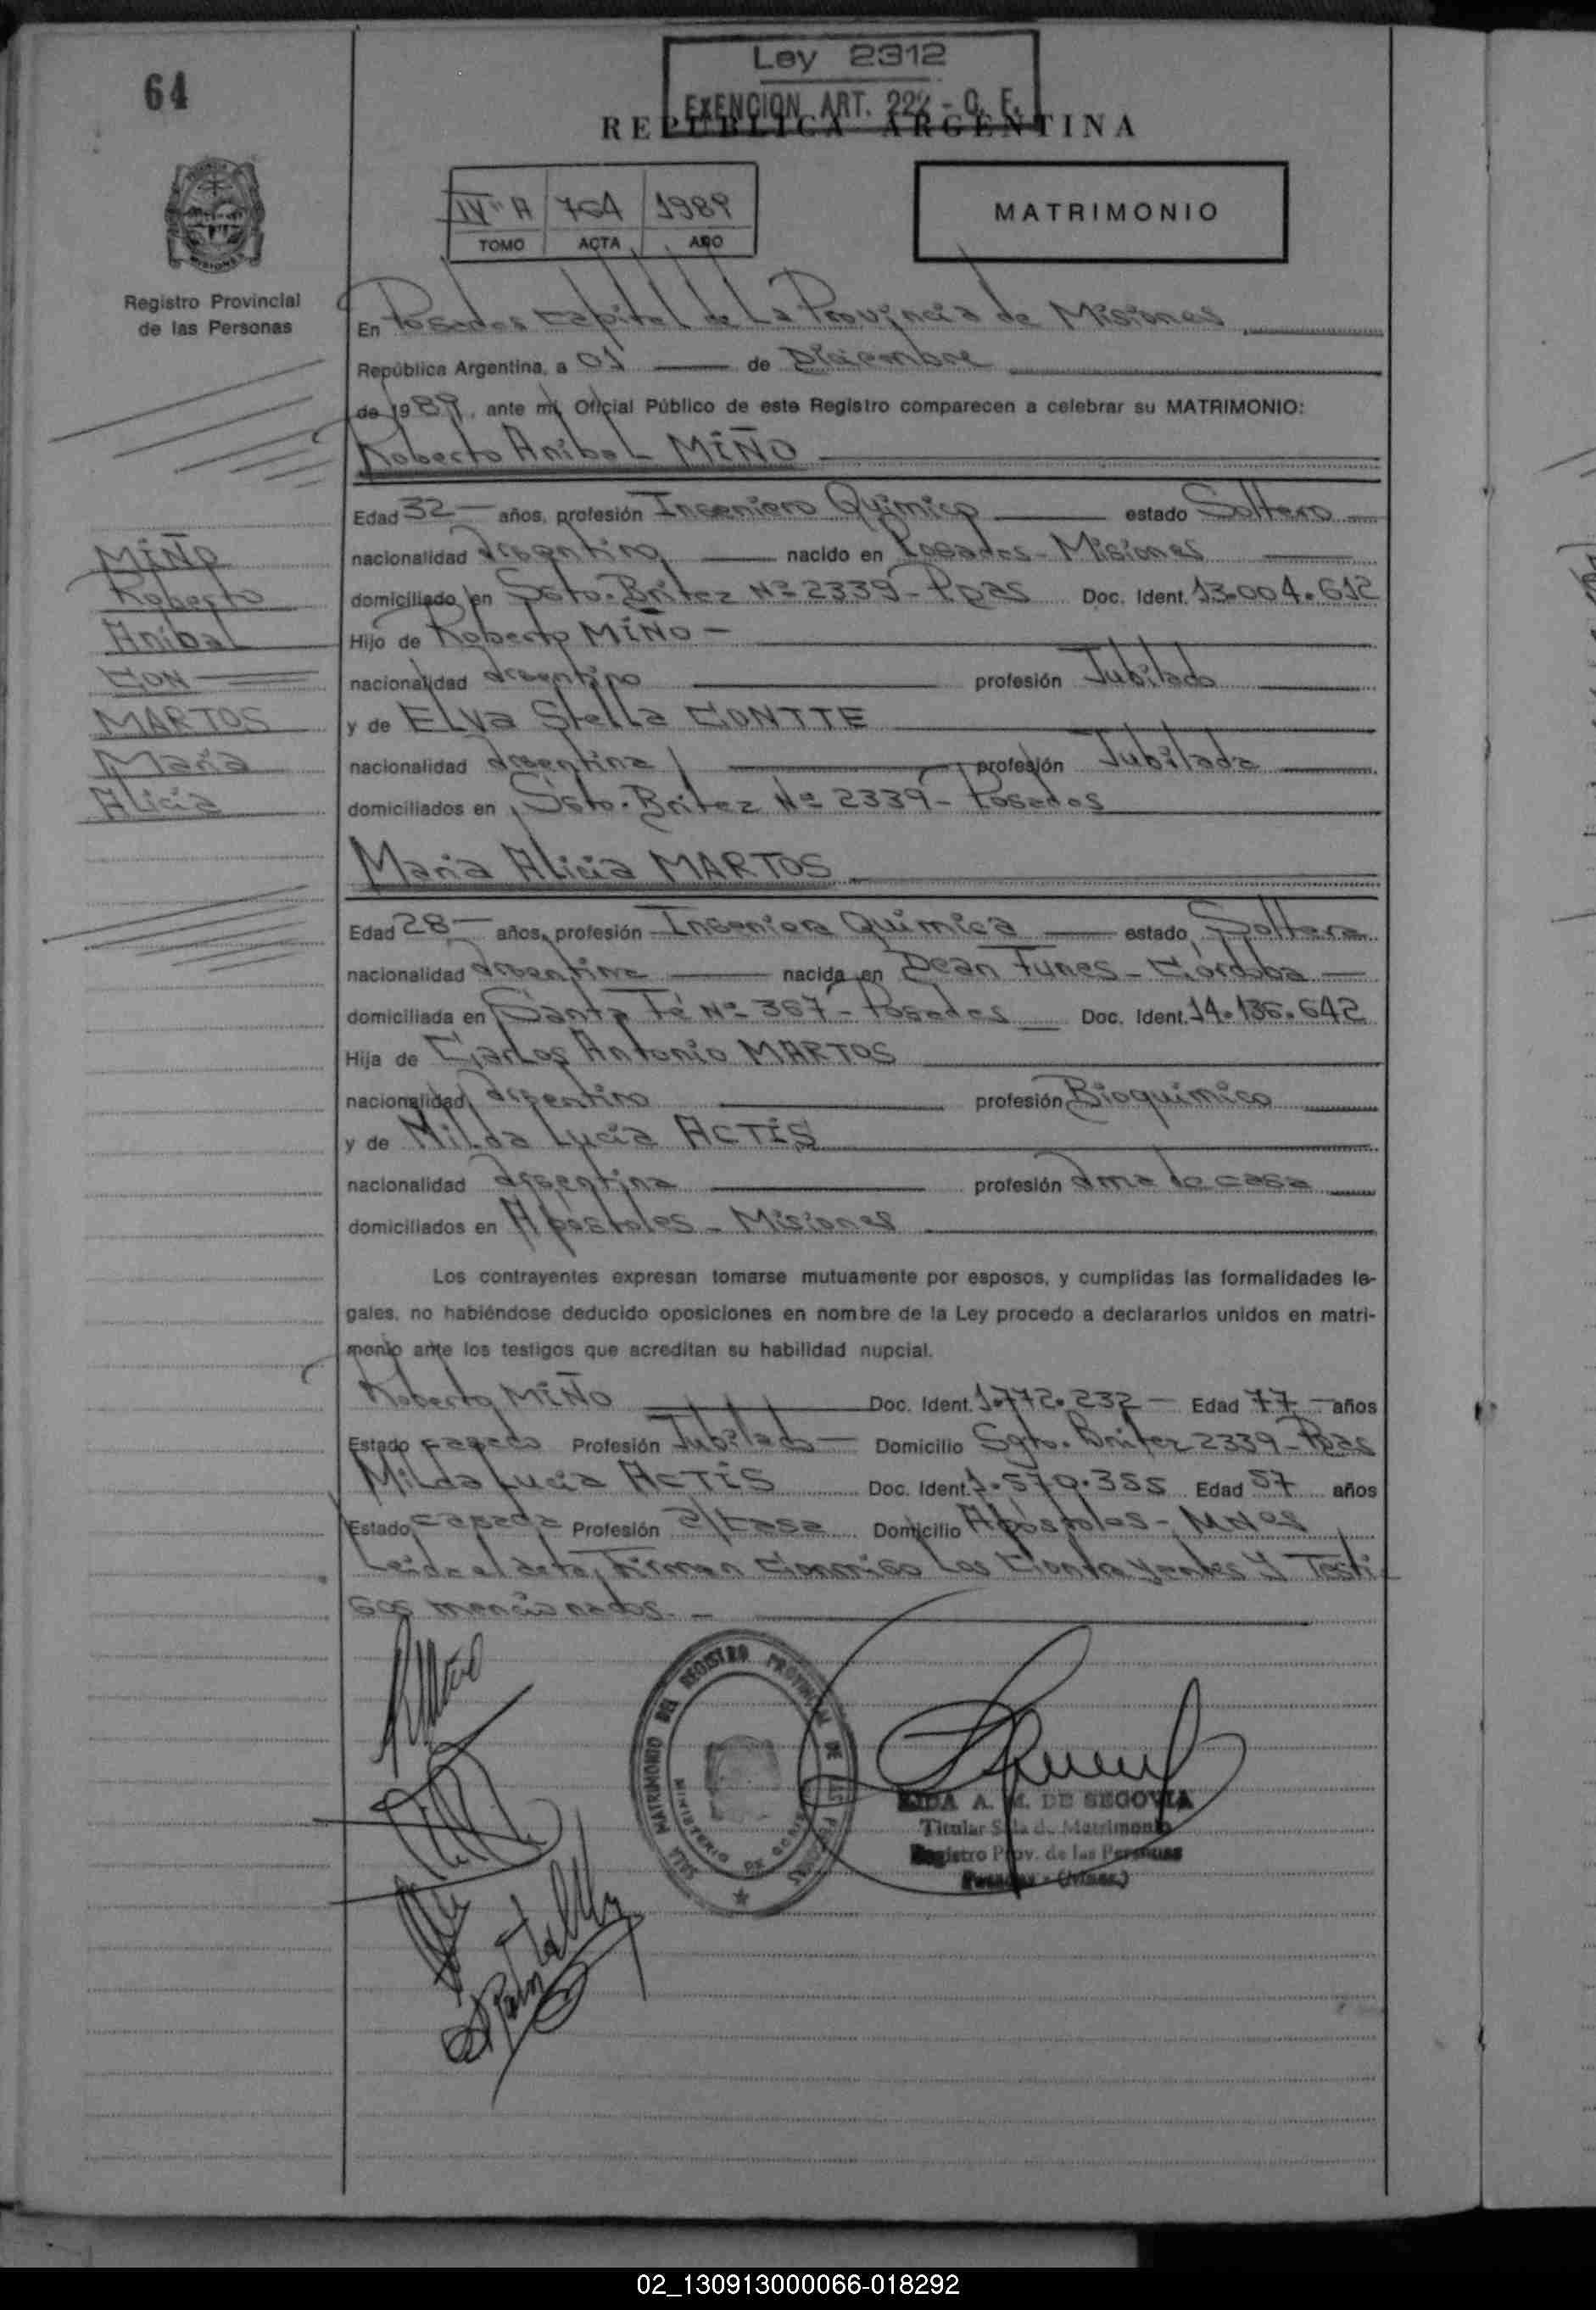 64
Ley 2312
EXENCION ART. 222 - C. F.
REPUBLICA ARGENTINA
IVº A 764 1989
TOMO ACTA AÑO
MATRIMONIO
Registro Provincial
de las Personas
En Posadas Capital de La Provincia de Misiones
República Argentina, a 01 de Diciembre
de 1989, ante mí, Oficial Público de este Registro comparecen a celebrar su MATRIMONIO:
Roberto Anibal MIÑO
Edad 32 años, profesión Ingeniero Químico estado Soltero
nacionalidad argentino nacido en Posadas - Misiones
domiciliado en Sgto. Britez Nº 2339 - Pdas Doc. Ident. 13.004.612
Hijo de Roberto MIÑO
nacionalidad argentino profesión Jubilado
y de Elva Stella CONTTE
nacionalidad argentina profesión Jubilada
domiciliados en Sgto. Britez Nº 2339 - Posadas
MIÑO
Roberto
Anibal
CON
MARTOS
Maria
Alicia
Maria Alicia MARTOS
Edad 28 años, profesión Ingeniera Química estado Soltera
nacionalidad argentina nacida en Dean Funes - Córdoba
domiciliada en Santa Fé Nº 367 - Posadas Doc. Ident. 14.136.642
Hija de Carlos Antonio MARTOS
nacionalidad argentino profesión Bioquimico
y de Milda Lucia ACTIS
nacionalidad argentina profesión ama de casa
domiciliados en Apóstoles - Misiones
Los contrayentes expresan tomarse mutuamente por esposos, y cumplidas las formalidades le-
gales, no habiéndose deducido oposiciones en nombre de la Ley procedo a declararlos unidos en matri-
monio ante los testigos que acreditan su habilidad nupcial.
Roberto MIÑO Doc. Ident. 1.772.232 Edad 77 años
Estado casado Profesión Jubilado Domicilio Sgto. Britez 2339 - Pdas
Milda Lucia ACTIS Doc. Ident. 1.570.355 Edad 57 años
Estado casada Profesión a/casa Domicilio Apóstoles - Mnes
Leida el acta, Firman Conmigo Los Contrayentes Y Testi-
gos mencionados.
SALA MATRIMONIO DEL REGISTRO PROVINCIAL DE LAS PERSONAS
MINISTERIO DE GOBIE
A. M. DE SEGOVIA
Titular Sala de Matrimonio
Registro Prov. de las Personas
Posadas - (Mnes.)
02_130913000066-018292